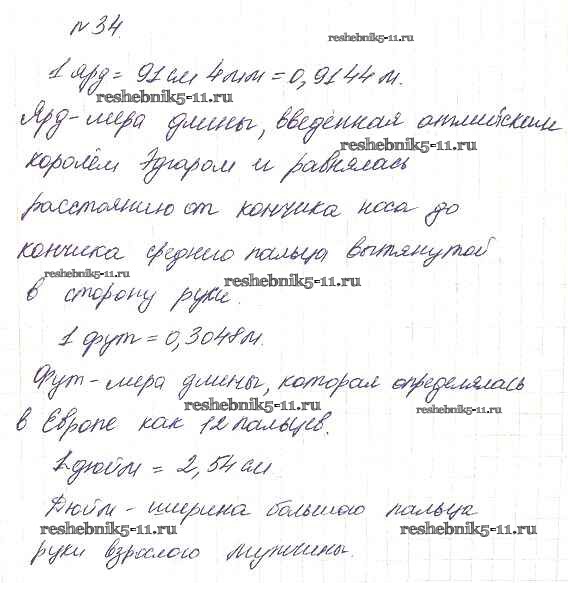 №34.
reshebnik5-11.ru
1 ярд = 91 см 4 мм = 0,9144 м.
reshebnik5-11.ru
Ярд - мера длины, введённая английским
reshebnik5-11.ru
королём Эдгаром и равнялась
расстоянию от кончика носа до
кончика среднего пальца вытянутой
reshebnik5-11.ru
reshebnik5-11.ru
в сторону руки.
1 фут = 0,3048 м.
Фут - мера длины, которая определялась
reshebnik5-11.ru
reshebnik5-11.ru
в Европе как 12 пальцев.
1 дюйм = 2,54 см.
Дюйм - ширина большого пальца
reshebnik5-11.ru
reshebnik5-11.ru
руки взрослого мужчины.